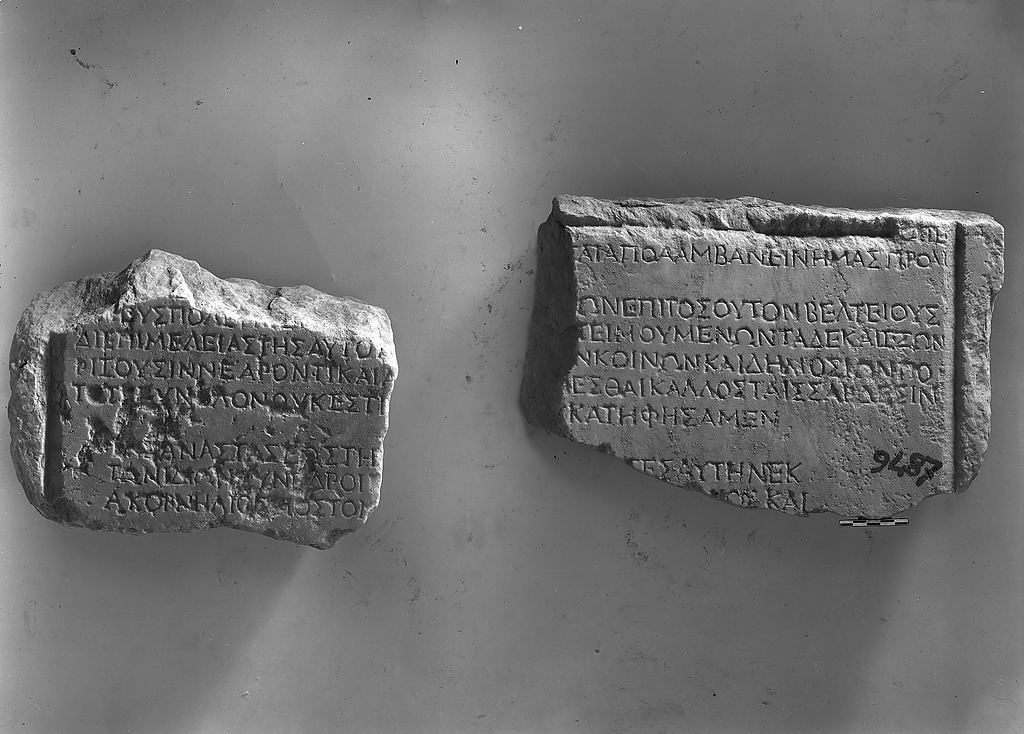 ΔΙΕΠΙΜΕΛΕΙΑΣΤΗΣΑΥΤΟΝ
ΡΙΣΟΥΣΙΝΝΕΑΡΟΝΤΙΚΑΙ
ΛΟΝΟΥΚΕΣΤΙ
ΑΝΑΣΤΑΣΕΩΣΤΗ
ΤΑΝΙΔΙΟΝ
ΔΡΟΙ
ΑΚΟΡΝΗΛΙΟ
ΑΓΑΠΟΛΑΜΒΑΝΕΙΝΗΜΑΣΠΡΟΛΙ
ΩΝΕΠΙΤΟΣΟΥΤΟΝΒΕΛΤΕΙΟΥΣ
ΤΕΙΜΟΥΜΕΝΩΝΤΑΔΕΚΑΙΕΞΩΝ
ΝΚΟΙΝΩΝΚΑΙΔΗΜΟΣΙΩΝΠΟ
ΕΣΘΑΙΚΑΛΛΟΣΤΑΙΣΣΑΡΔΕΣΙΝ
ΚΑΤΗΦΗΣΑΜΕΝ
ΕΣΑΥΤΗΝΕΚ
ΚΑΙ
9487